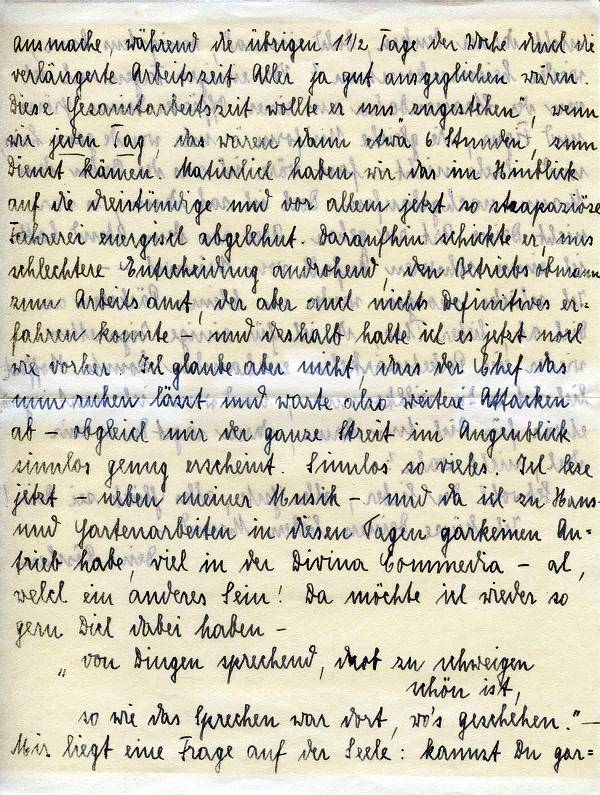 ausmache, während die übrigen 1 1/2 Tage der Woche durch die
verlängerte Arbeitszeit Aller ja gut ausgeglichen wären.
Diese Gesamtarbeitszeit wollte er uns „zugestehen", wenn
wir jeden Tag, das wären dann etwa 6 Stunden, zum
Dienst kämen. Natürlich haben wir das im Hinblick
auf die dreistündige und vor allem jetzt so strapaziöse
Fahrerei energisch abgelehnt. Daraufhin schickte er, uns
schlechtere Entscheidung androhend, den Betriebsobmann
zum Arbeitsamt, der aber auch nichts Definitives er-
fahren konnte – und deshalb halte ich es jetzt noch
wie vorher. Ich glaube aber nicht, dass der Chef das
nun ruhen lässt und warte also weitere Attacken
ab – obgleich mir der ganze Streit im Augenblick
sinnlos genug erscheint. Sinnlos so vieles. Ich lese
jetzt – neben meiner Musik – und da ich zu Haus-
und Gartenarbeiten in diesen Tagen garkeinen An-
trieb habe, viel in der Divina Commedia – ach,
welch ein anderes Sein! Da möchte ich wieder so
gern Dich dabei haben –
„ von Dingen sprechend, drob zu schweigen
schön ist,
so wie das Sprechen war dort, wo's geschehen." –
Mir liegt eine Frage auf der Seele: kannst Du gar=